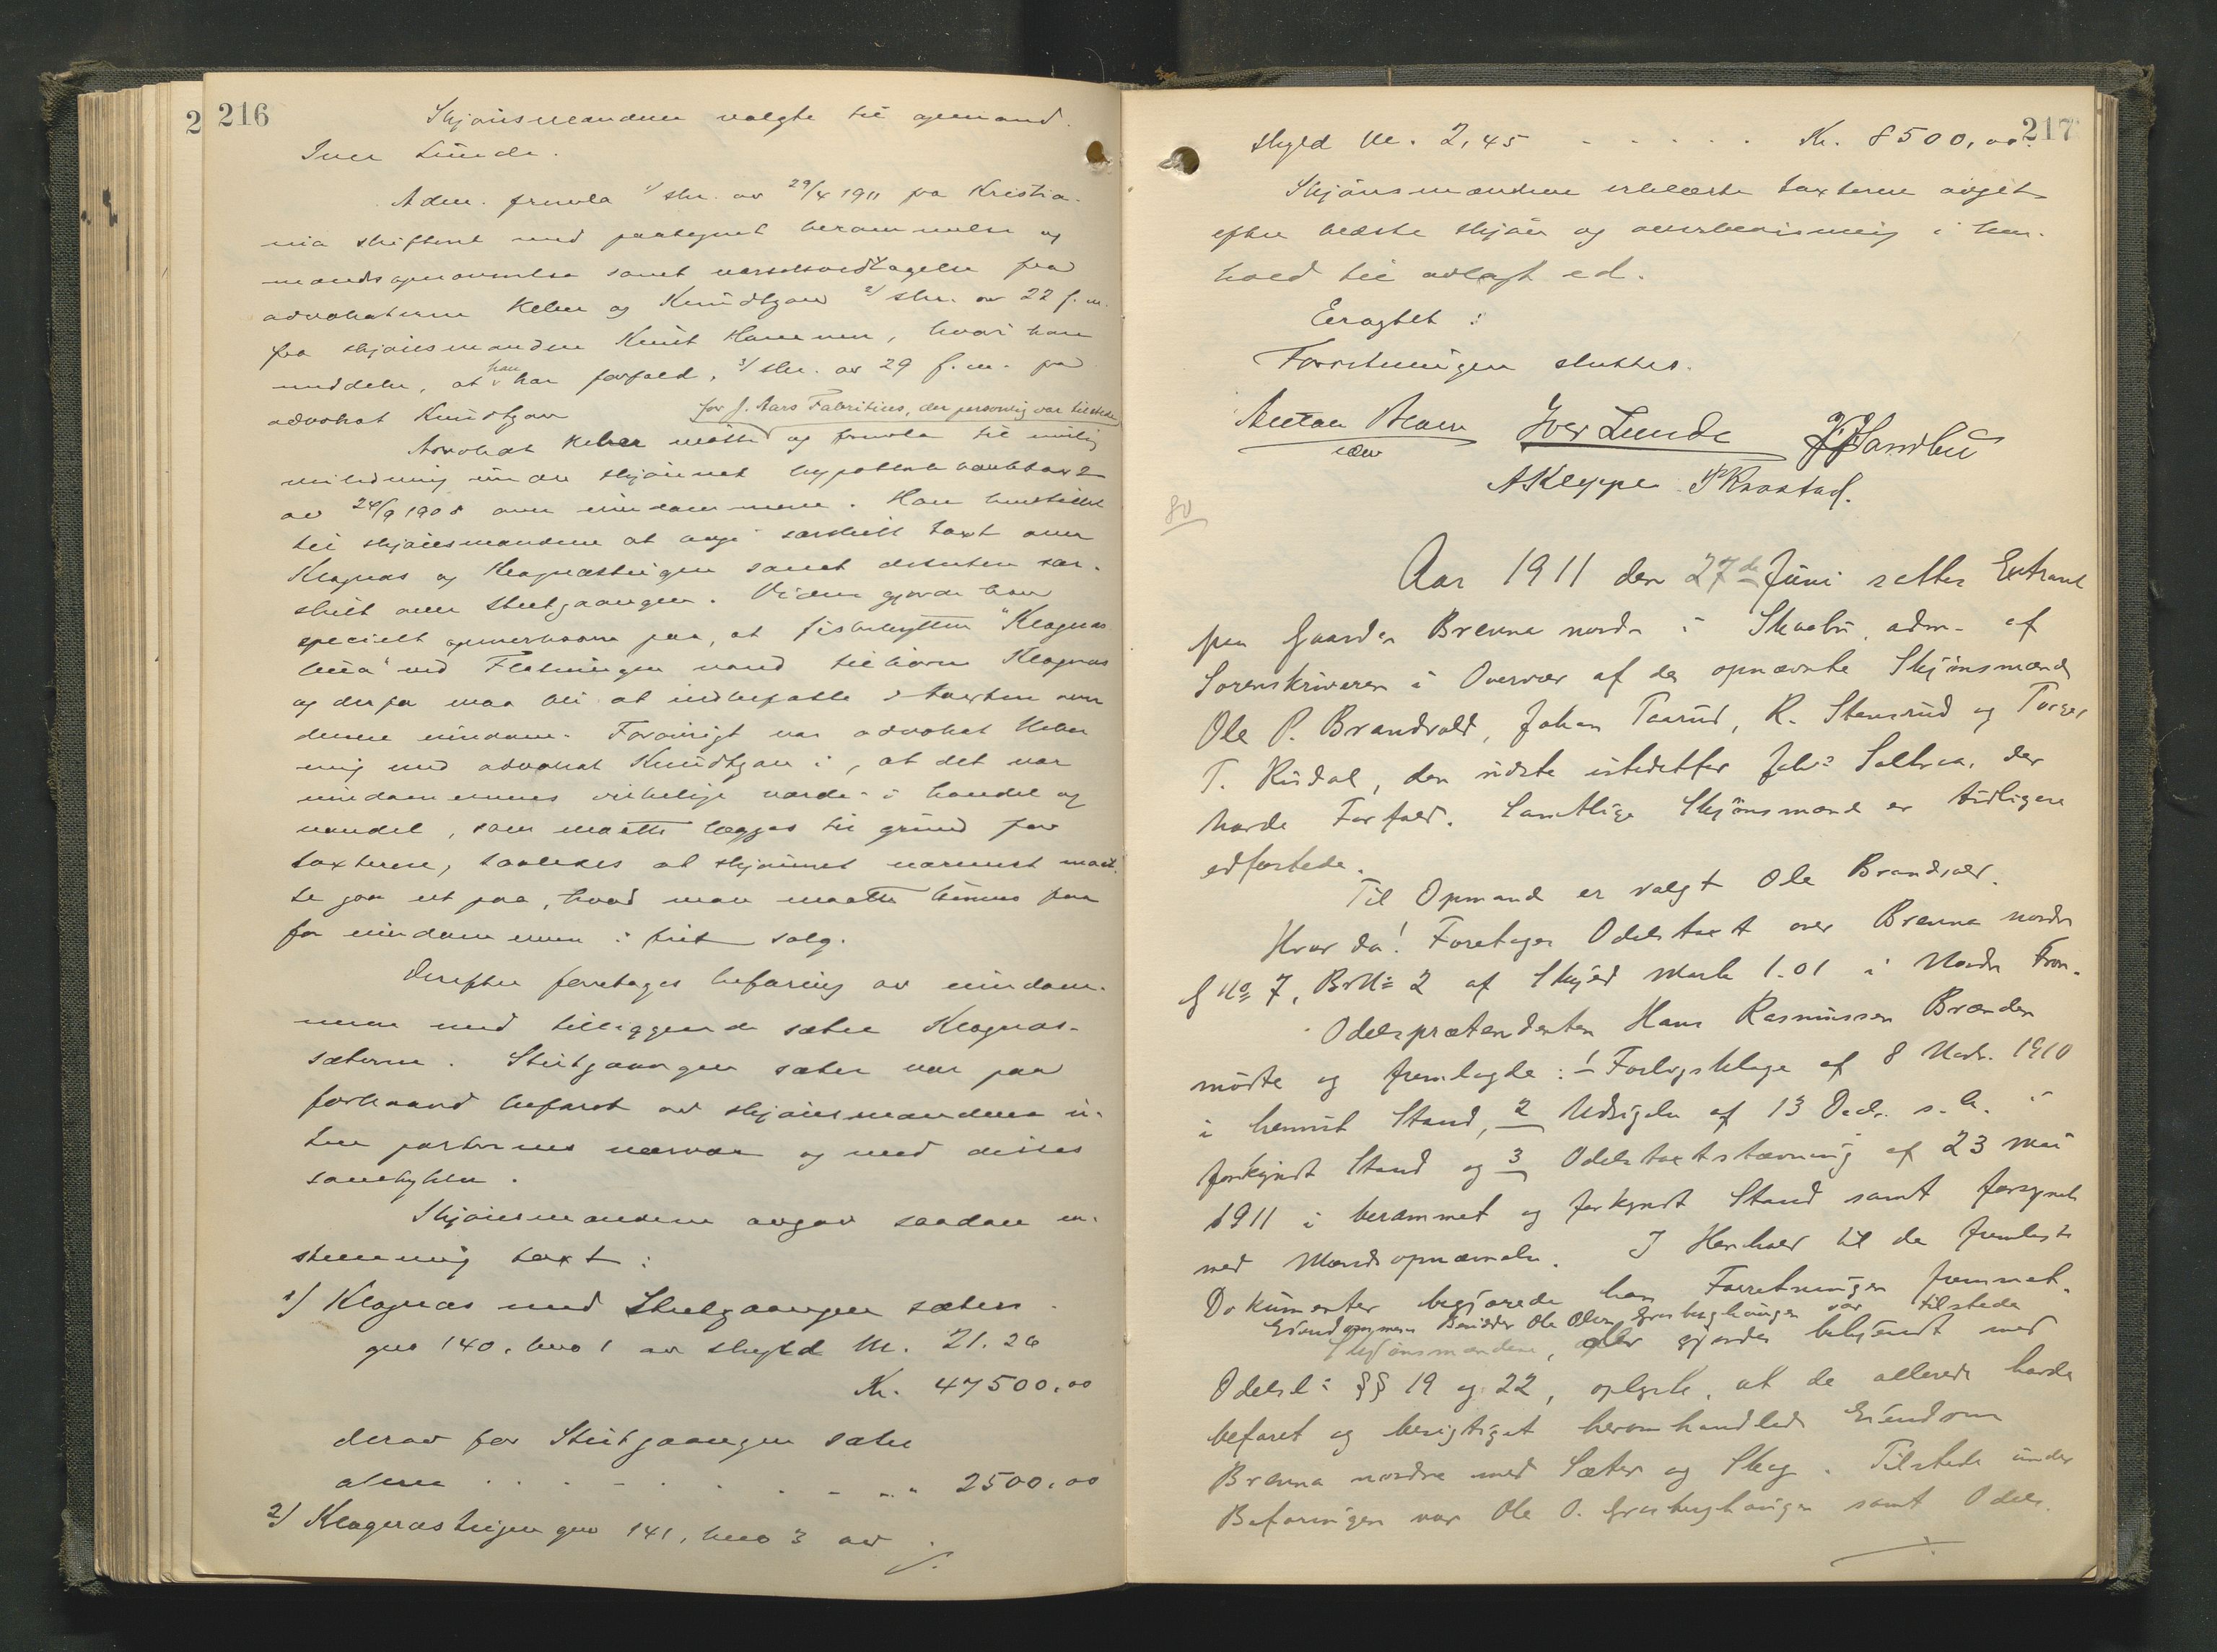 216
2
Skjønsmændene valgte til opmand
Iver Lunde.
Adm. fremla 1/ skr. av 29/4 1911 fra Kristia-
nia skifteret med paategnet berammelse og
mandsopnævnelse samt varselsvedtagelse fra
advokaterne Keber og Knudtzon 2/ skr. av 22 f. m.
fra skjønsmanden Knut Hammer, hvori han
meddeler, at han har forfald, 3/ skr. av 29 f. m. fra
advokat Knudtzon
for J. Aars Fabritius, der personlig var tilstede
Advokat Keber møtte og fremla til mulig
veiledning under skjønnet hypotekbanktaxt
av 24/9 1908 over eiendommene. Han henstillet
til skjønsmændene at avgi særskilt taxt over
Klognæs og Klognæsteigen samt desuten sær-
skilt over Stutgaangen. Videre gjorde han
specielt opmerksom paa, at fiskehytten "Klognæs
bua" ved Flatningen vand tilhører Klognæs
og derfor maa bli at indbefatte i taxten over
denne eiendom. Forøvrigt var advokat Keber
enig med advokat Knudtzon i, at det var
eiendommenes virkelige værdi i handel og
vandel, som maatte lægges til grund for
taxterne, saaledes at skjønnet nærmest maat-
te gaa ut paa, hvad man maatte kunne faa
for eiendommen i frit salg.
Derefter foretages befaring av eiendom-
mene med tilliggende sæter Klognæs-
sæteren. Stutgaangen sæter var paa
forhaand befaret av skjønsmændene u-
ten parternes nærvær og med disses
samtykke.
Skjønsmændene avgav saadan en-
stemmig taxt:
1/ Klognæs med Stutgaangen sæter
gno 140, bno 1 av skyld M. 21.26
Kr. 47500,00
derav for Stutgaangen sæter
alene . . . . . . . " 2500,00
2/ Klognæsteigen gno 141, bno 3 av
./.
217
skyld M. 2,45 - - - - - Kr. 8500,00.
Skjønsmændene erklærte taxterne avgit
efter bedste skjøn og overbevisning i hen-
hold til avlagt ed.
Eragtet:
Forretningen sluttes.
Iver Lunde
A Kleppe
80
Aar 1911 den 27de Juni sattes Extraret
paa Gaarden Brenna nordre i Skaabu, adm. af
Sorenskriveren i Overvær af de opnævnte Skjønsmænd
Ole P. Brandvold, Johan Taarud, R. Stensrud og Torger
T. Risdal, den sidste istedetfor Johs Solbraa, der
havde Forfald. Samtlige Skjønsmænd er tidligere
edfæstede.
Til Opmand er valgt Ole Brandvold.
Hvor da! Foretoges Odelstaxt over Brenna nordre
G No 7, Br No 2 af Skyld Mark 1.01 i Nordre Fron.
Odelsprætendenten Hans Rasmussen Brænden
mødte og fremlagde: 1 Forligsklage af 8 Novbr. 1910
i henvist Stand, 2 Udsigelse af 13 Decbr. s. A. i
forkyndt Stand og 3 Odelstaxtstævning af 23 Mai
1911 i berammet og forkyndt Stand samt forsynet
med Mandsopnævnelse. I Henhold til de fremlagte
Dokumenter begjærede han Forretningen fremmet.
Eiendommens Besidder Ole Olsen Graabughaugen var tilstede
Skjønsmændene, der gjordes bekjendt med
Odelsl: §§ 19 og 22, oplyste, at de allerede havde
befaret og besigtiget heromhandlede Eiendom
Brenna nordre med Sæter og Skog. Tilstede under
Befaringen var Ole O. Graabughaugen samt Odels-
./.